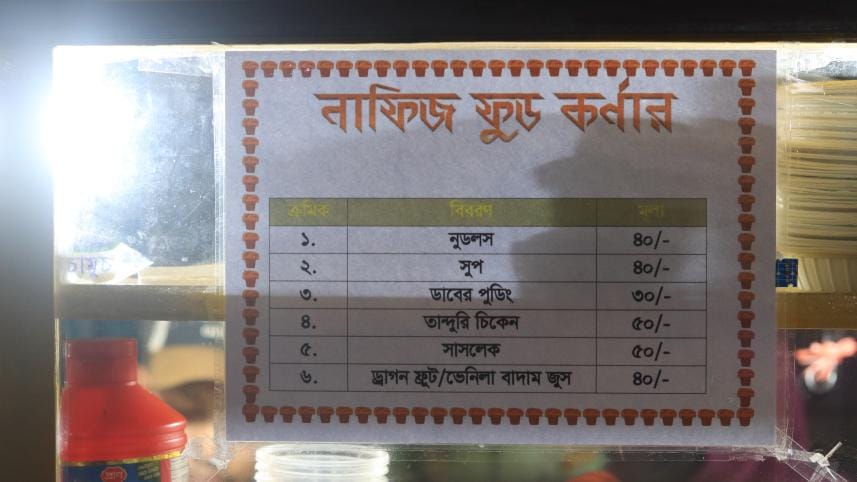 নাফিজ ফুড কর্ণার
ক্রমিক বিবরণ মূল্য
১. নুডলস ৪০/-
২. সুপ ৪০/-
৩. ডাবের পুডিং ৩০/-
৪. তান্দুরি চিকেন ৫০/-
৫. সাসলেক ৫০/-
৬. ড্রাগন ফ্রুট/ভেনিলা বাদাম জুস ৪০/-
প্রাণ